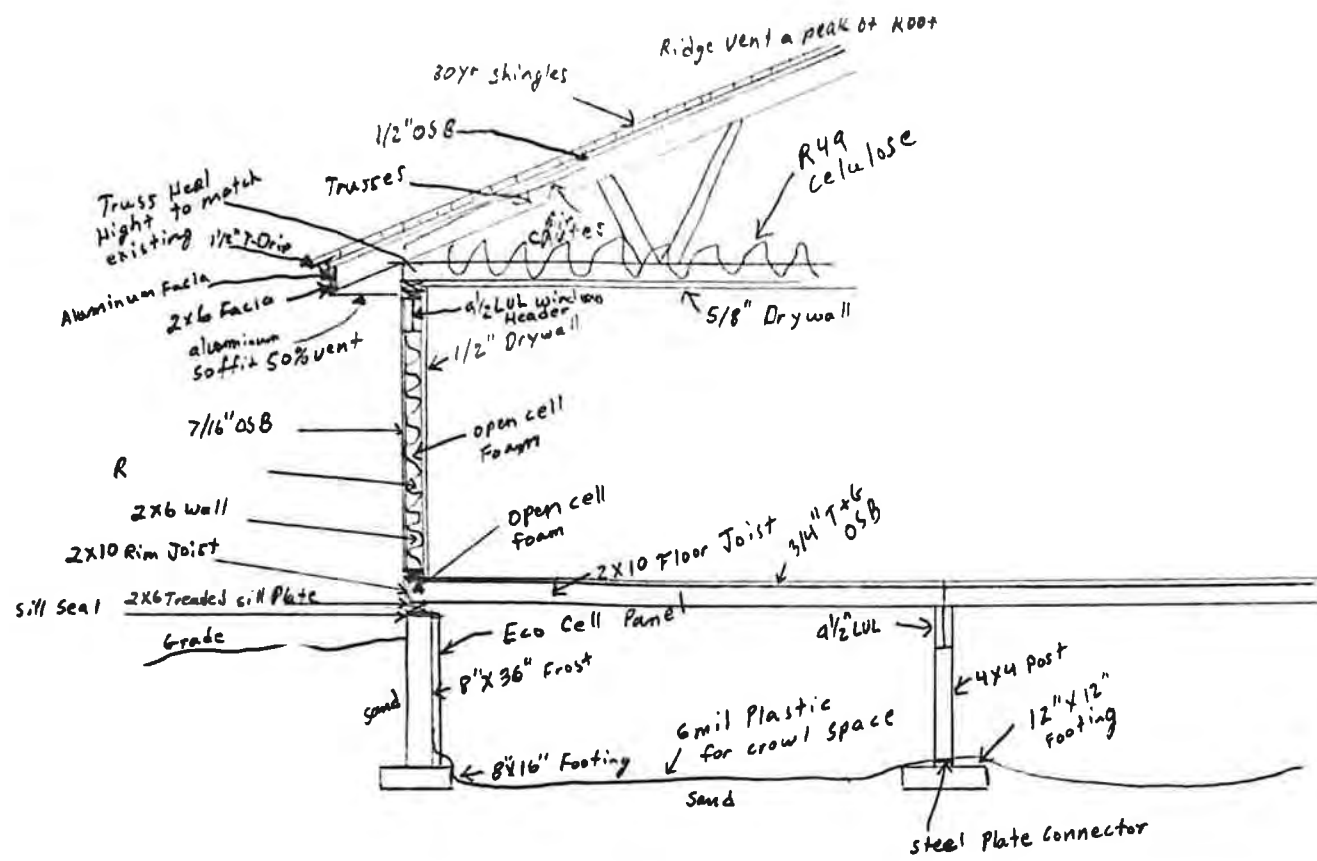 Ridge Vent a peak of Roof
30yr shingles
1/2" OSB
R49
celulose
Trusses
Truss Heal
Hight to match
existing
1½" T-Drip
Air
chutes
Aluminum Facia
2x6 Facia
aluminum
soffit 50% vent
9½ LVL window
Header
5/8" Drywall
1/2" Drywall
7/16" OSB
open cell
Foam
R
2x6 wall
open cell
foam
2x10 Rim Joist
2x10 Floor Joist
3/4" T+G
OSB
Sill Seal
2x6 Treaded sill Plate
Grade
Eco Cell Panel
9½" LVL
8"x36" Frost
4x4 Post
sand
6 mil Plastic
for crowl space
12"x12"
Footing
8"x16" Footing
Sand
steel Plate Connector